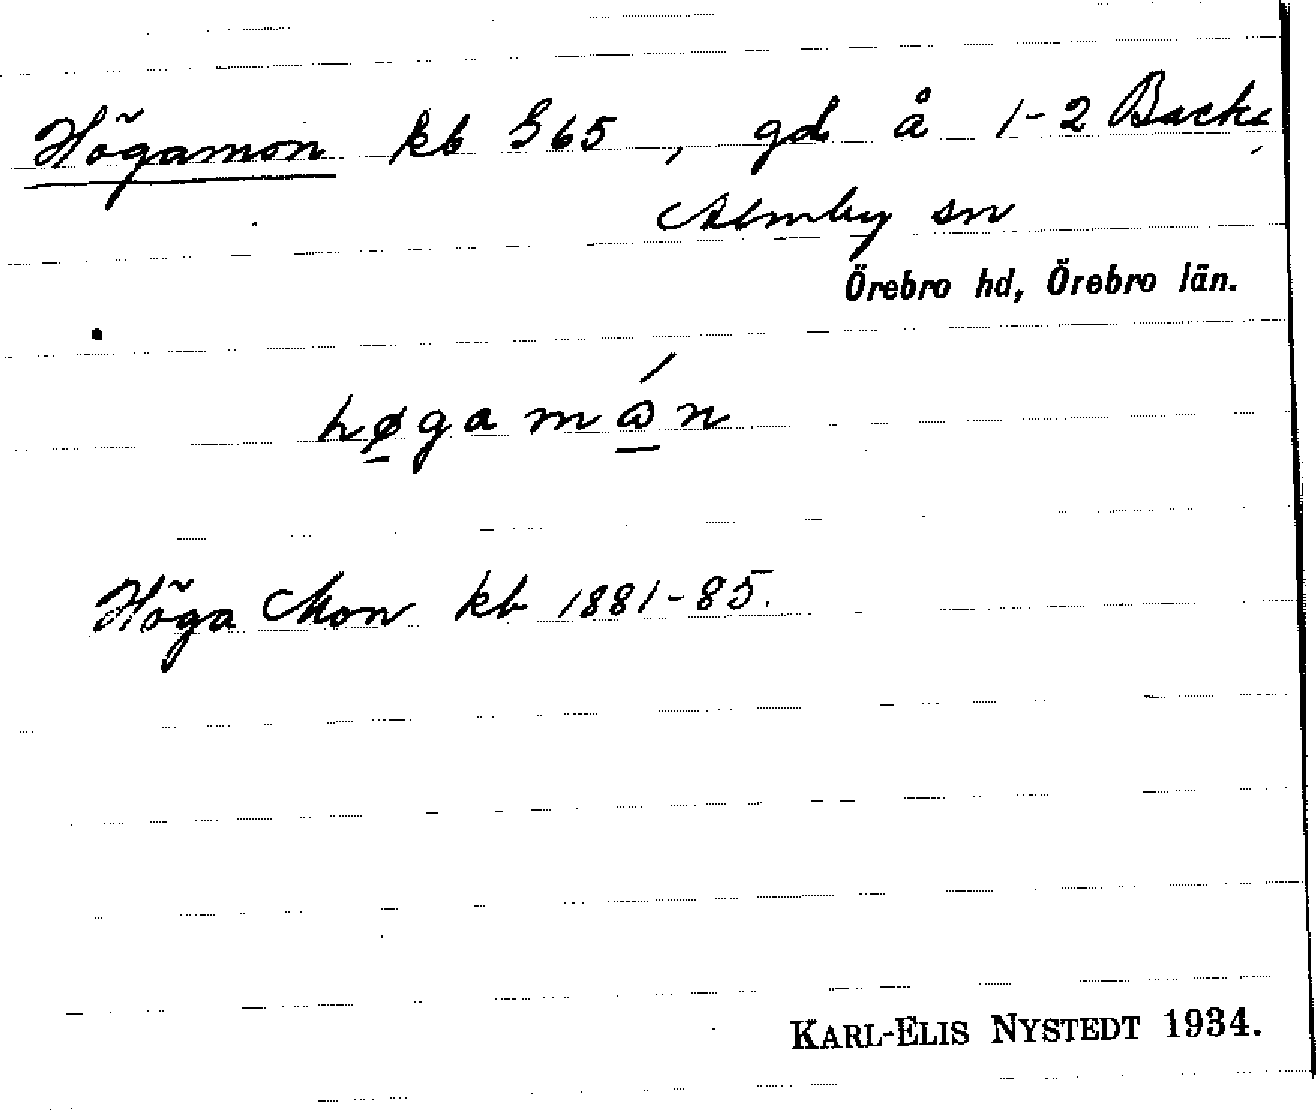 Högamon kb S65, gd å 1-2 Backa,
Almby sn
Örebro hd, Örebro län.
høgamån
Höga Mon kb 1881-85.
KARL-ELIS NYSTEDT 1934.